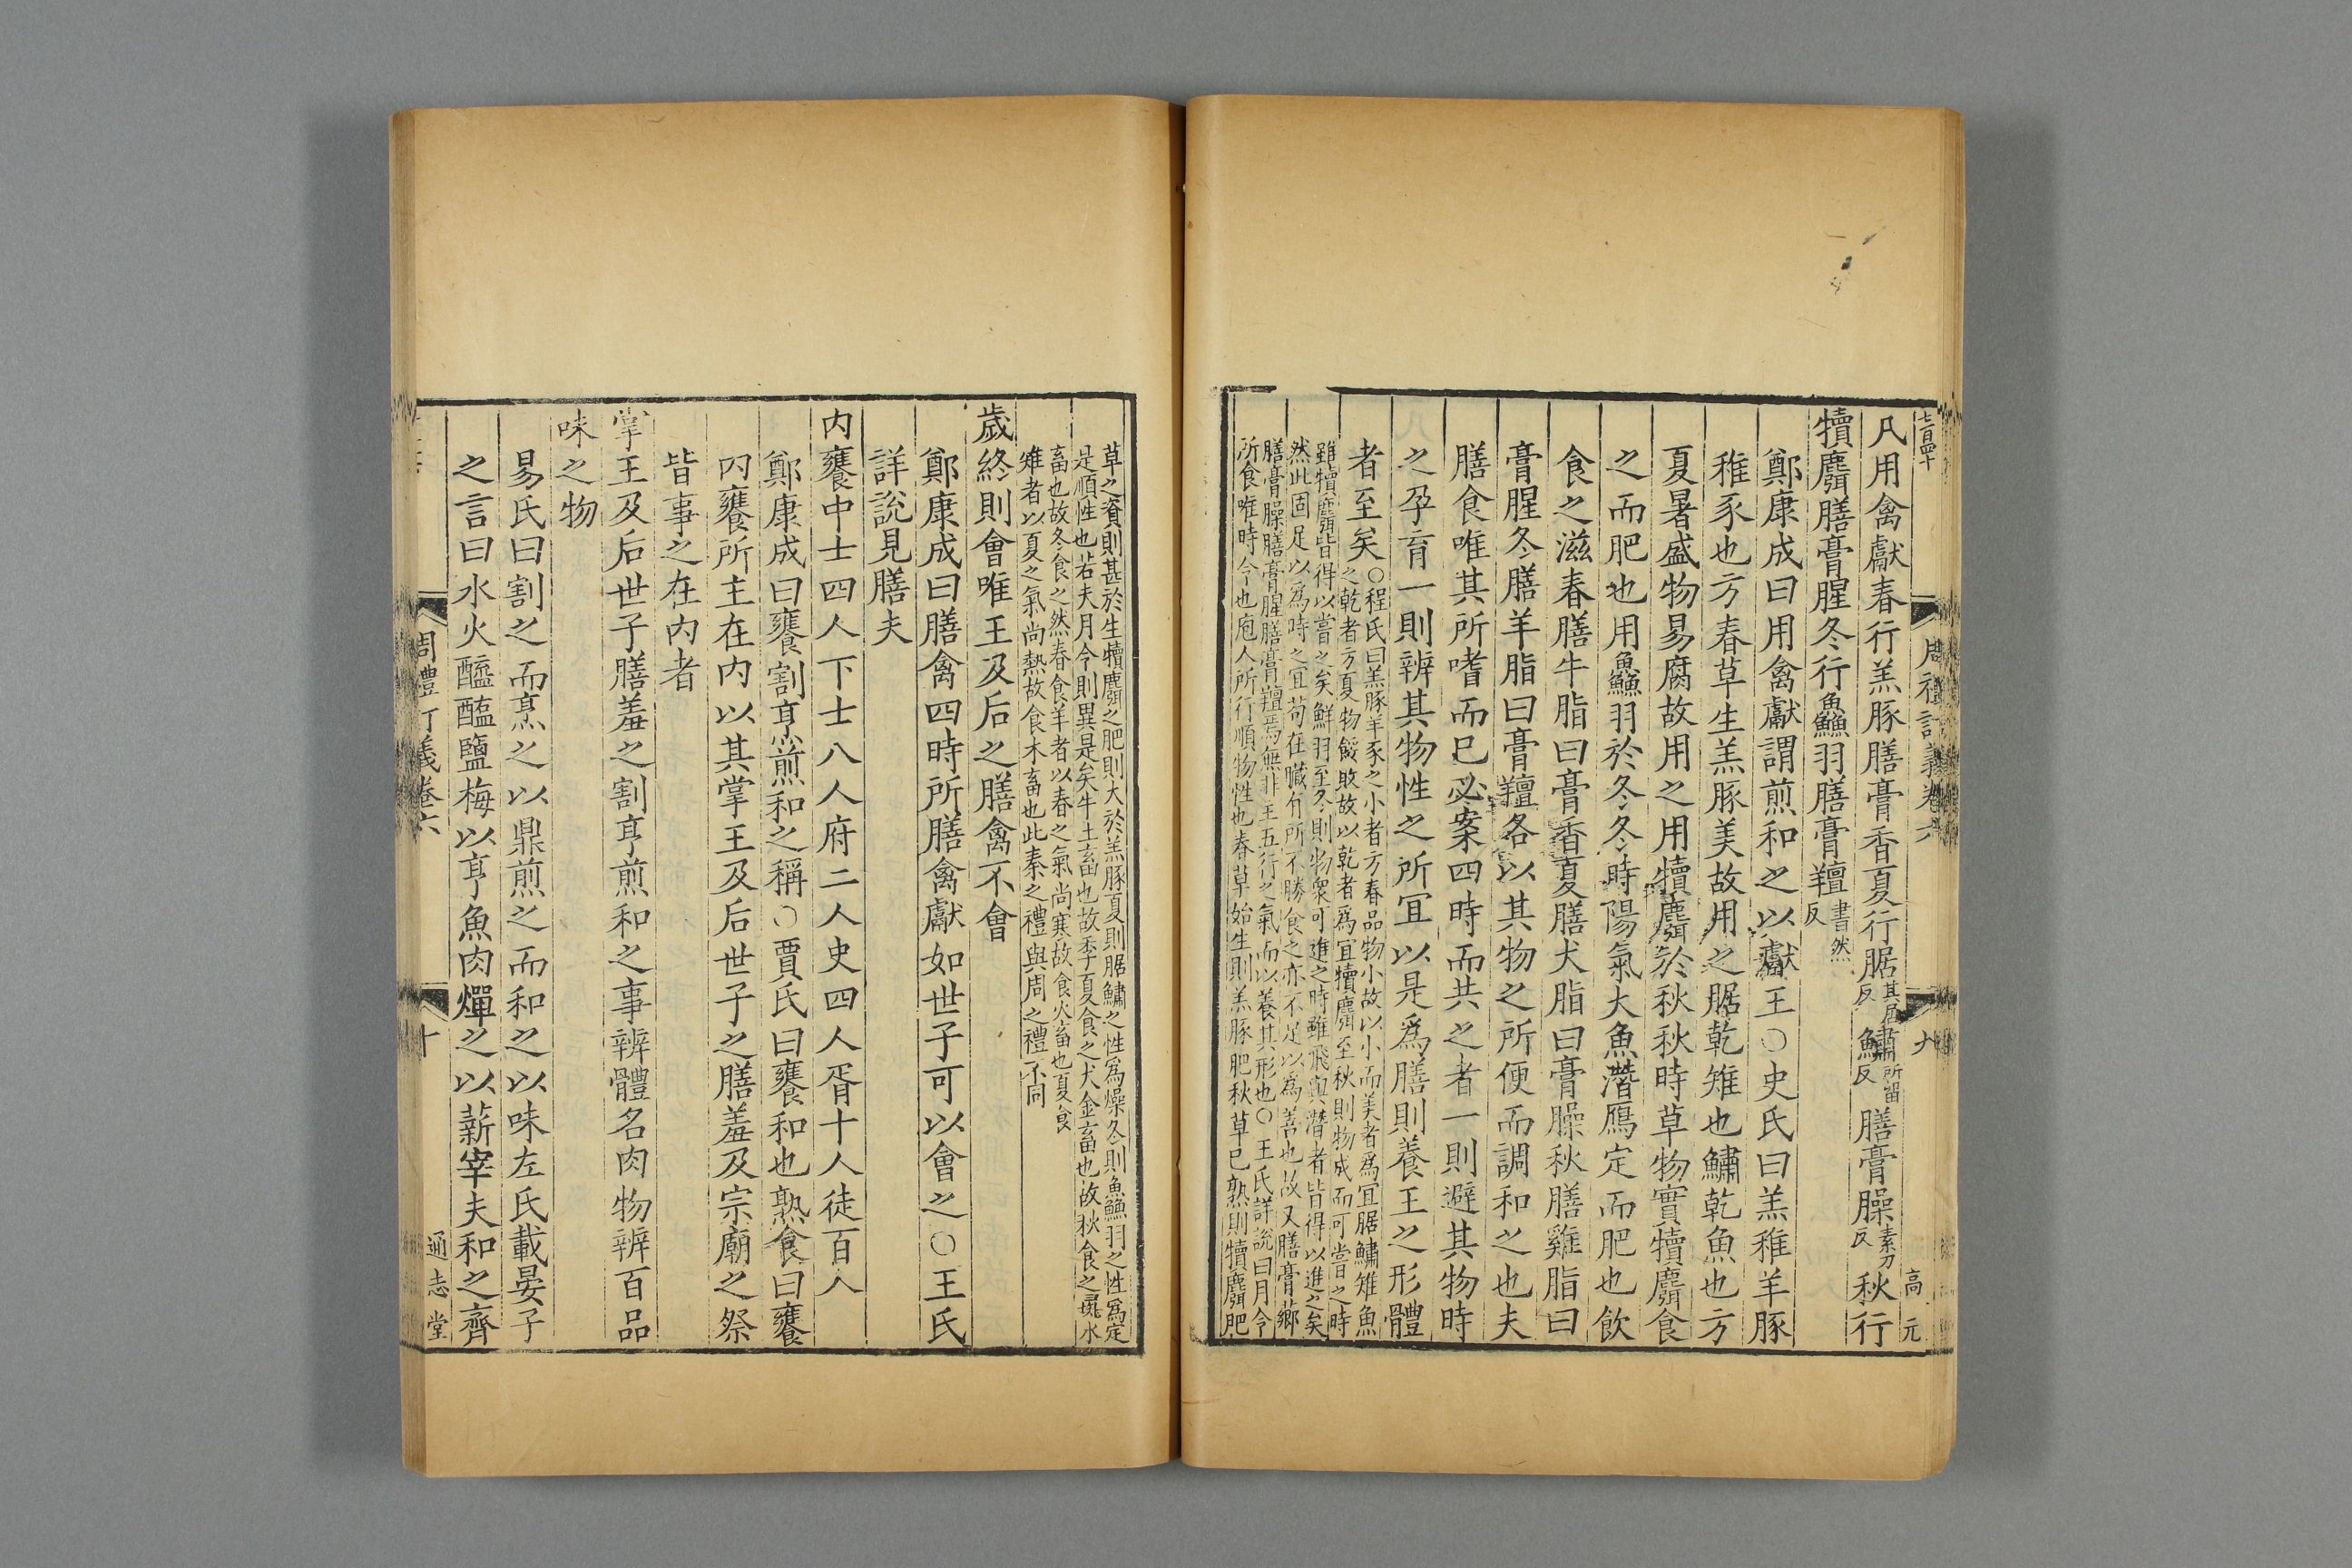 七百四十
周禮訂義卷六
九
高元
凡用禽獻春行羔豚膳膏香夏行腒其居反鱐所留反膳膏臊素刀反秋行
犢麛膳膏腥冬行鱻羽膳膏羶書然反
鄭康成曰用禽獻謂煎和之以獻王○史氏曰羔稚羊豚
稚豕也方春草生羔豚美故用之腒乾雉也鱐乾魚也方
夏暑盛物易腐故用之用犢麛於秋秋時草物實犢麛食
之而肥也用鱻羽於冬冬時陽氣大魚濳鴈定而肥也飲
食之滋春膳牛脂曰膏香夏膳犬脂曰膏臊秋膳雞脂曰
膏腥冬膳羊脂曰膏羶各以其物之所便而調和之也夫
膳食唯其所嗜而已必案四時而共之者一則避其物時
之孕育一則辨其物性之所宜以是爲膳則養王之形體
者至矣○程氏曰羔豚羊豕之小者方春品物小故以小而美者爲宜腒鱐雉魚
之乾者方夏物餒敗故以乾者爲宜犢麛至秋則物成而可嘗之時
雖犢麛皆得以嘗之矣鮮羽至冬則物衆可進之時雖飛與濳者皆得以進之矣
然此固足以爲時之宜苟在臟有所不勝食之亦不足以爲善也故又膳膏薌
膳膏臊膳膏腥膳膏羶焉無非王五行之氣而以養其形也○王氏詳說曰月令
所食唯時令也庖人所行順物性也春草始生則羔豚肥秋草已熟則犢麛肥
草之資則甚於生犢麛之肥則大於羔豚夏則腒鱐之性爲燥冬則魚鱻羽之性爲定
是順性也若夫月令則異是矣牛土畜也故季夏食之犬金畜也故秋食之彘水
畜也故冬食之然春食羊者以春之氣尚寒故食火畜也夏食
雉者以夏之氣尚熱故食木畜也此秦之禮與周之禮不同
歲終則會唯王及后之膳禽不會
鄭康成曰膳禽四時所膳禽獻如世子可以會之○王氏
詳說見膳夫
内饔中士四人下士八人府二人史四人胥十人徒百人
鄭康成曰饔割亨煎和之稱○賈氏曰饔和也熟食曰饔
内饔所主在内以其掌王及后世子之膳羞及宗廟之祭
皆事之在内者
掌王及后世子膳羞之割亨煎和之事辨體名肉物辨百品
味之物
易氏曰割之而烹之以鼎煎之而和之以味左氏載晏子
之言曰水火醯醢鹽梅以亨魚肉燀之以薪宰夫和之齊
周禮訂義卷六
十
通志堂